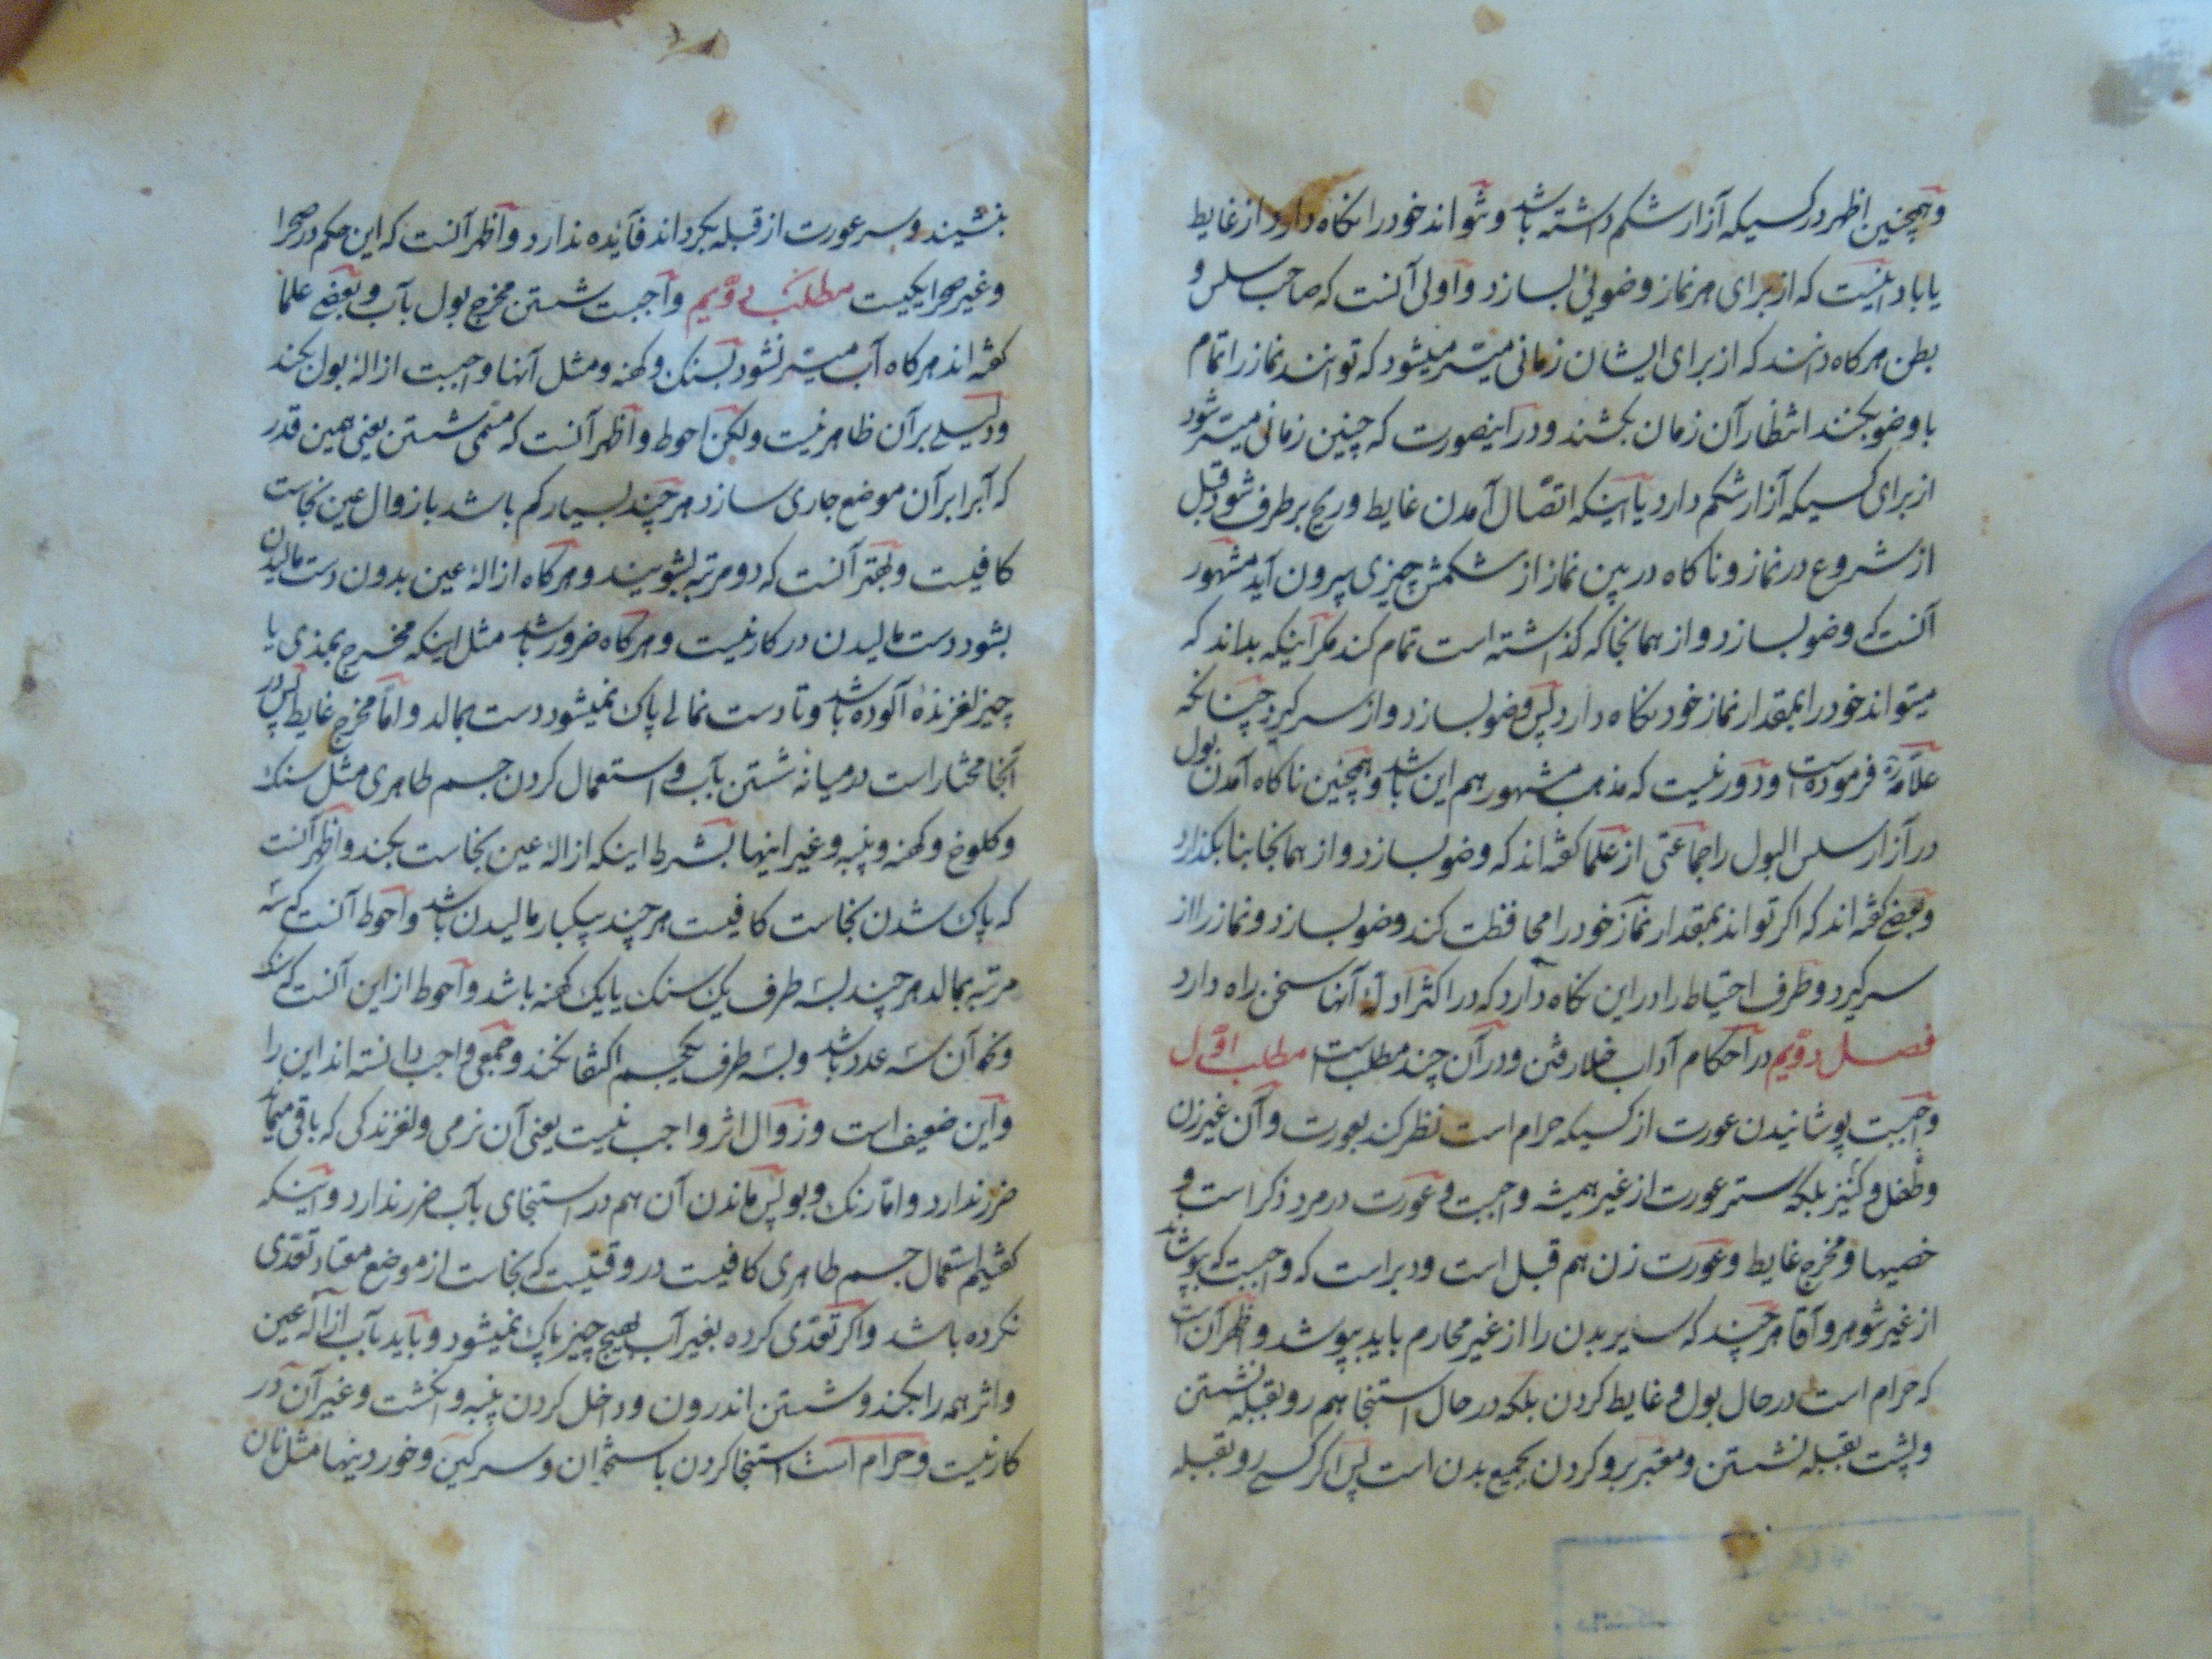 وهمچنین اظهر در کسیکه آزار شکم داشته باشد ونتواند خود را نکاه دارد از غایط
یا باد اینست که از برای هر نماز وضوئی بسازد واولی آنست که صاحب سلس و
بطن هرکاه دانند که از برای ایشان زمانی میسر میشود که توانند نماز را تمام
با وضو بکنند انتظار آن زمان بکشند ودر اینصورت که چنین زمانی میسر شود
از برای کسیکه آزار شکم دارد یا اینکه اتصال آمدن غایط وریح برطرف شود قبل
از شروع در نماز وناکاه در بین نماز از شکمش چیزی بیرون آید مشهور
آنست که وضو بسازد واز همانجا که کذاشته است تمام کند مکر اینکه بداند که
میتواند خود را بمقدار نماز خود نکاه دارد پس وضو بسازد واز سر کیرد چنانکه
علامه ره فرموده است ودور نیست که مذهب مشهور هم این باشد وهمچنین ناکاه آمدن بول
در آزار سلس البول را جماعتی از علما کفته اند که وضو بسازد واز همانجا بنا بکذارد
وبعضی کفته اند که اکر تواند بمقدار نماز خود را محافظت کند وضو بسازد ونماز را از
سر کیرد وطرف احتیاط را در این نکاه دارد که در اکثر ادله آنها سخن راه دارد
فصل دویم در احکام آداب خلا رفتن ودر آن چند مطلب است مطلب اول
واجبست پوشانیدن عورت از کسیکه حرام است نظر کند بعورت وآن غیر زن
وطفل وکنیز بلکه ستر عورت از غیر همیشه واجبست وعورت در مرد ذکر است و
خصیها ومخرج غایط وعورت زن هم قبل است ودبر است که واجبست که بپوشاند
از غیر شوهر وآقا هرچند که سایر بدن را از غیر محارم باید بپوشد واظهر آن است
که حرام است در حال بول وغایط کردن بلکه در حال استنجا هم رو بقبله نشستن
وپشت بقبله نشستن ومعتبر برو کردن بجمیع بدن است پس اکر کسی رو بقبله
بنشیند وسر عورت از قبله بکرداند فآیده ندارد واظهر آنست که این حکم در صحرا
وغیر صحرا یکیست مطلب دویم واجبست شستن مخرج بول بآب وبعضی علما
کفته اند هرکاه آب میسر نشود بسنک وکهنه ومثل آنها واجبست ازاله بول بکند
ودلیلی بر آن ظاهر نیست ولکن احوط واظهر آنست که مسمی شستن یعنی همین قدر
که آبرا بر آن موضع جاری سازد هر چند بسیار کم باشد با زوال عین نجاست
کافیست وبهتر آنست که دو مرتبه بشویند وهرکاه ازاله عین بدون دست مالیدن
بشود دست مالیدن در کار نیست وهرکاه ضرور باشد مثل اینکه مخرج بمذی یا
چیز لغزنده آلوده باشد وتا دست نمالی پاک نمیشود دست بمالد واما مخرج غایط پس در
آنجا مختار است در میانه شستن بآب واستعمال کردن جسم طاهری مثل سنک
وکلوخ وکهنه وپنبه وغیر اینها بشرط اینکه ازاله عین نجاست بکند واظهر آنست
که پاک شدن نجاست کافیست هر چند بیکبار مالیدن باشد واحوط آنست که سه
مرتبه بمالد هر چند بسه طرف یک سنک یا یک کهنه باشد واحوط از این آنست که سنک
وکهنه آن سه عدد باشد وبسه طرف یکجسم اکتفا نکند وجمعی واجب دانسته اند این را
واین ضعیف است وزوال اثر واجب نیست یعنی آن نرمی ولغزندکی که باقی میماند
ضرر ندارد واما رنک وبو پس ماندن آن هم در استنجای بآب ضرر ندارد واینکه
کفتیم استعمال جسم طاهری کافیست در وقتیست که نجاست از موضع معتاد تعدی
نکرده باشد واکر تعدی کرده بغیر آب بهیچ چیز پاک نمیشود وباید بآب ازاله عین
واثر همه را بکند وشستن اندرون وداخل کردن پنبه وانکشت وغیر آن در
کار نیست وحرام است استنجا کردن باستخوان وسرکین وخوردینها مثل نان